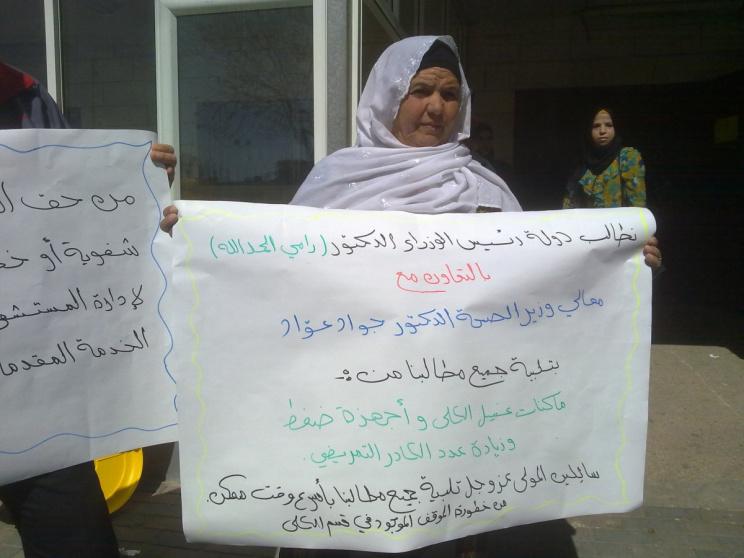 نطالب دولة رئيس الوزراء الدكتور (رامي الحمدالله)
بالتعاون مع
معالي وزير الصحة الدكتور جواد عوّاد
بتلبية جميع مطالبنا من :-
ماكنات غسيل الكلى و أجهزة ضغط
وزيادة عدد الكادر التمريضي.
سائلين المولى عزوجل تلبية جميع مطالبنا بأسرع وقت ممكن.
من خطورة الموقف الموجود في قسم الكلى
من حق ال
شفوية أو خط
لإدارة المستشفى
الخدمة المقدمة